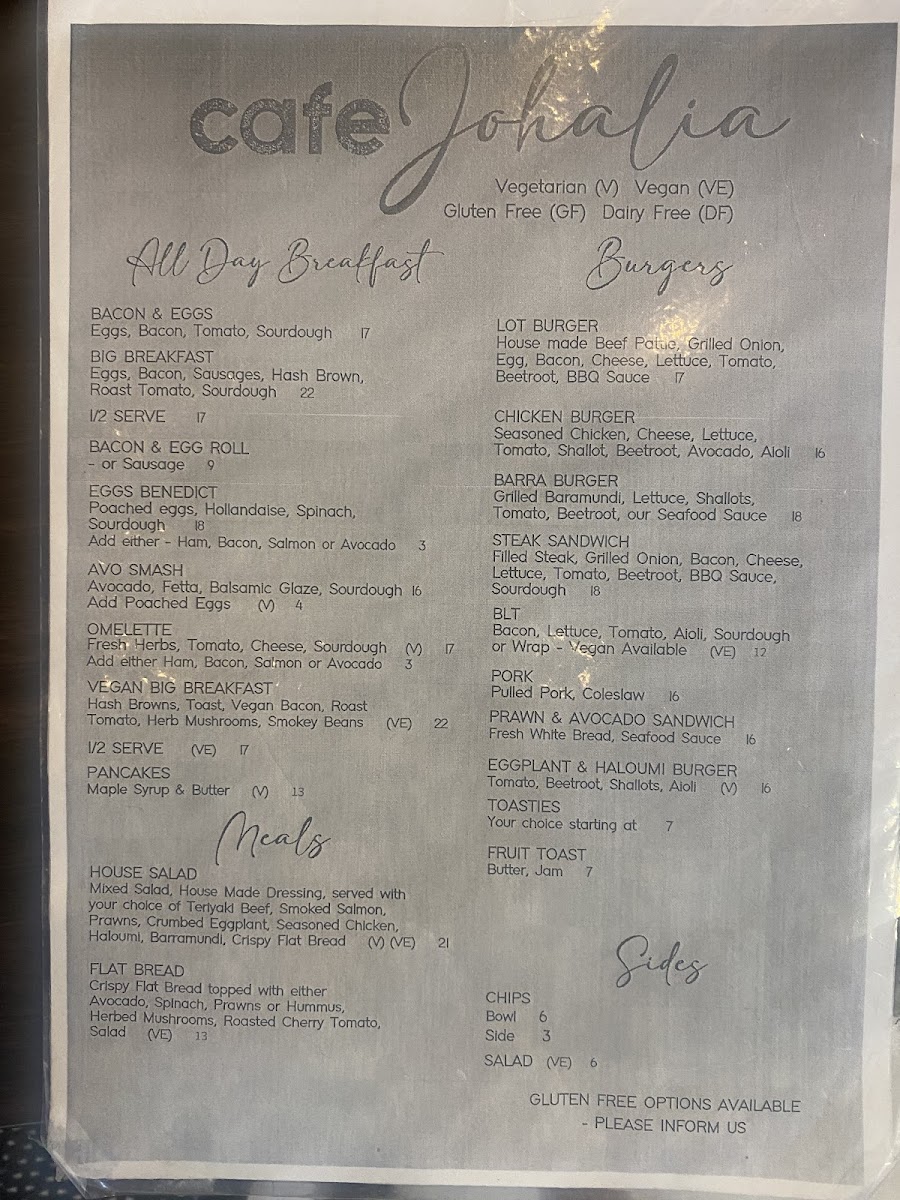 cafe Johalia
Vegetarian (V) Vegan (VE)
Gluten Free (GF) Dairy Free (DF)
All Day Breakfast
BACON & EGGS
Eggs, Bacon, Tomato, Sourdough 17
BIG BREAKFAST
Eggs, Bacon, Sausages, Hash Brown,
Roast Tomato, Sourdough 22
1/2 SERVE 17
BACON & EGG ROLL
- or Sausage 9
EGGS BENEDICT
Poached eggs, Hollandaise, Spinach,
Sourdough 18
Add either - Ham, Bacon, Salmon or Avocado 3
AVO SMASH
Avocado, Fetta, Balsamic Glaze, Sourdough 16
Add Poached Eggs (V) 4
OMELETTE
Fresh Herbs, Tomato, Cheese, Sourdough (V) 17
Add either Ham, Bacon, Salmon or Avocado 3
VEGAN BIG BREAKFAST
Hash Browns, Toast, Vegan Bacon, Roast
Tomato, Herb Mushrooms, Smokey Beans (VE) 22
1/2 SERVE (VE) 17
PANCAKES
Maple Syrup & Butter (V) 13
Meals
HOUSE SALAD
Mixed Salad, House Made Dressing, served with
your choice of Teriyaki Beef, Smoked Salmon,
Prawns, Crumbed Eggplant, Seasoned Chicken,
Haloumi, Barramundi, Crispy Flat Bread (V) (VE) 21
FLAT BREAD
Crispy Flat Bread topped with either
Avocado, Spinach, Prawns or Hummus,
Herbed Mushrooms, Roasted Cherry Tomato,
Salad (VE) 13
Burgers
LOT BURGER
House made Beef Pattie, Grilled Onion,
Egg, Bacon, Cheese, Lettuce, Tomato,
Beetroot, BBQ Sauce 17
CHICKEN BURGER
Seasoned Chicken, Cheese, Lettuce,
Tomato, Shallot, Beetroot, Avocado, Aioli 16
BARRA BURGER
Grilled Baramundi, Lettuce, Shallots,
Tomato, Beetroot, our Seafood Sauce 18
STEAK SANDWICH
Filled Steak, Grilled Onion, Bacon, Cheese,
Lettuce, Tomato, Beetroot, BBQ Sauce,
Sourdough 18
BLT
Bacon, Lettuce, Tomato, Aioli, Sourdough
or Wrap - Vegan Available (VE) 12
PORK
Pulled Pork, Coleslaw 16
PRAWN & AVOCADO SANDWICH
Fresh White Bread, Seafood Sauce 16
EGGPLANT & HALOUMI BURGER
Tomato, Beetroot, Shallots, Aioli (V) 16
TOASTIES
Your choice starting at 7
FRUIT TOAST
Butter, Jam 7
Sides
CHIPS
Bowl 6
Side 3
SALAD (VE) 6
GLUTEN FREE OPTIONS AVAILABLE
- PLEASE INFORM US